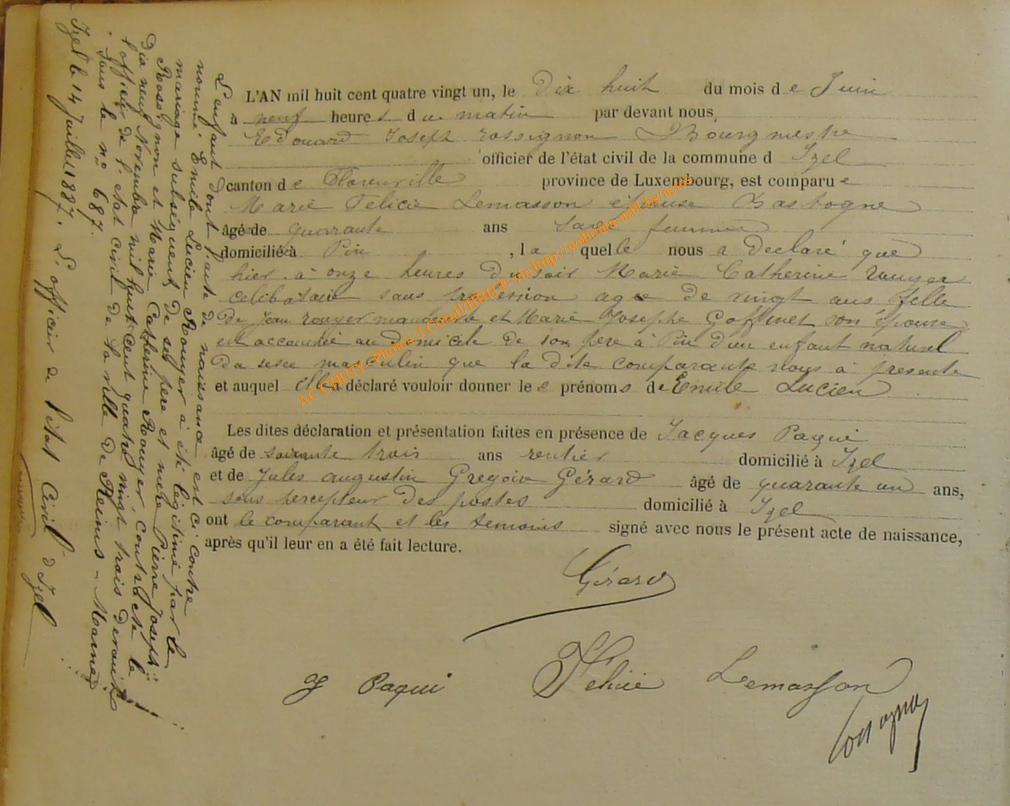 L'AN mil huit cent quatre vingt un, le Dix huit du mois d e Juin
à neuf heure s du matin par devant nous,
Edouard Joseph rossignon Bourgmestre
officier de l'état civil de la commune d Izel
canton d e Florenville province de Luxembourg, est comparu e
Marie Felicie Lemasson épouse Bastogne
âgé de quarante ans sage femme
domicilié à Pin , la quelle nous a Declaré que
hier à onze heures du soir Marie Catherine rouyer
célibataire sans profession agee de vingt ans fille
De Jean rouyer manoeuvre et Marie Josephe Goffinet son épouse
est accouchée au Domicile de son père à Pin d'un enfant naturel
Du sexe masculin que la dite comparante nous à presenté
et auquel elle a déclaré vouloir donner le s prénoms de Emile Lucien
Les dites déclaration et présentation faites en présence de Jacques Paqui
âgé de soixante trois ans rentier domicilié à Izel
et de Jules augustin Gregoire Gérard âgé de quarante un ans,
sous percepteur Des postes domicilié à Izel
ont le comparant et les temoins signé avec nous le présent acte de naissance,
après qu'il leur en a été fait lecture.
Gérard
J Paqui Félicie Lemasson
L'enfant dont l'acte de naissance est ci contre
nommé Emile Lucien Rouyer à été légitimé par le
mariage subséquent de ses père et mère Pierre Joseph
Rossignon et Marie Catherine Rouyer, contracté le
dix neuf Novembre mil huit cent quatre vingt trois devant
l'officier de l'état civil de la ville de Reims - Marne
sous le n° 687.
Izel le 14 Juillet 1887. L'officier de l'état Civil d'Izel